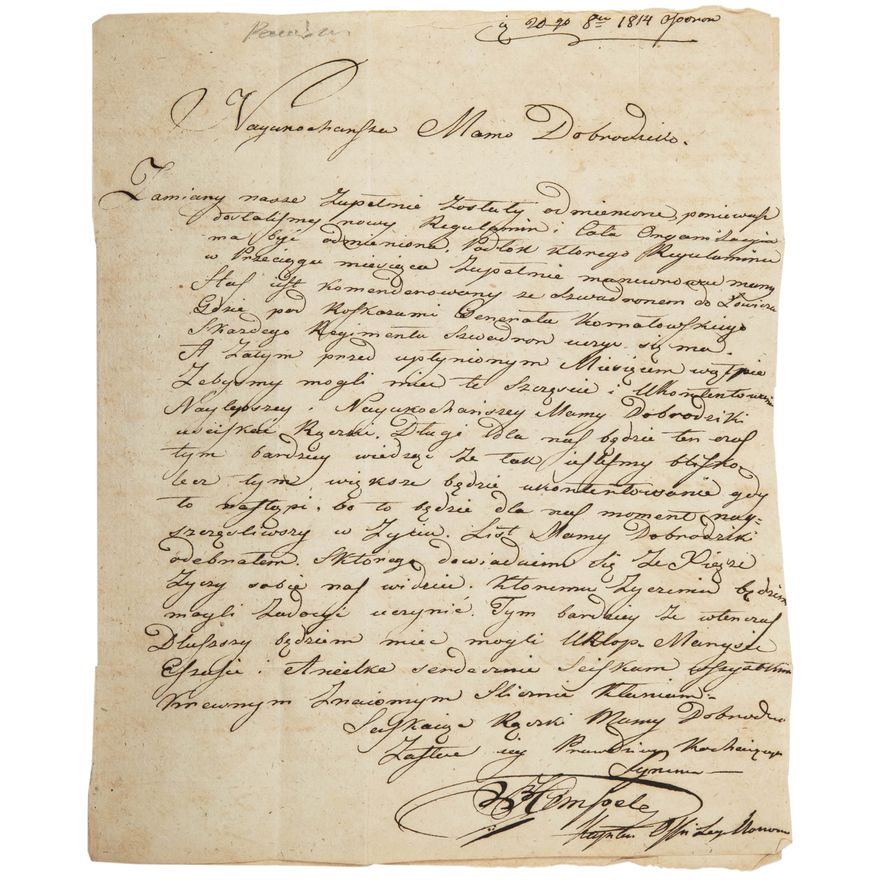 20go 8bre 1814
Nayukochansza Mamo Dobrodziko.
Zamiany nasze Zupełnie Zostały odmienione, ponieważ
dostaliśmy nowy Regulamin i Cała Organizacyia
ma być odmieniona, Podłok ktorego Regulaminu
w Przeciągu miesiąca Zupełnie manewrować mamy
Staś iest komenderowany ze szwadronem do Łowicza
Gdzie pod Roskazami Generała
Skażdego Regimentu Szwadron uczyć się ma.
A Zatym przed upłynionym Miesiącem wątpię
Żebyśmy mogli mieć te Szczęście i Ukontentowanie
Naylepszey i Nayukochańszey Mamy Dobrodziki
uciskać Rączki. Długi dla nas będzie ten czas
tym bardziey wiedząc że tak iesteśmy blisko,
lecz tym większe będzie ukontentowanie gdy
to nastąpi, bo to będzie dla nas moment nay=
szczęśliwszy w Życiu. List Mamy Dobrodziki
odebrałem. Sktorego dowiaduiem się Że Xiąże
Życzy sobie nas widzieć. Ktoremu Życzeniu będziem
mogli Zadosyć uczynić. Tym bardziey że wtenczas
Dłuższy będziem mieć mogli Urlop. Marysię
i Anielkę serdecznie Sciskam
Krewnym Znaiomym Slicznie Kłaniam
Sciskaiąc Rączki Mamy Dobrodzi
Zostaię iey Prawdziwy Kochaiącym
Synem
Hempel